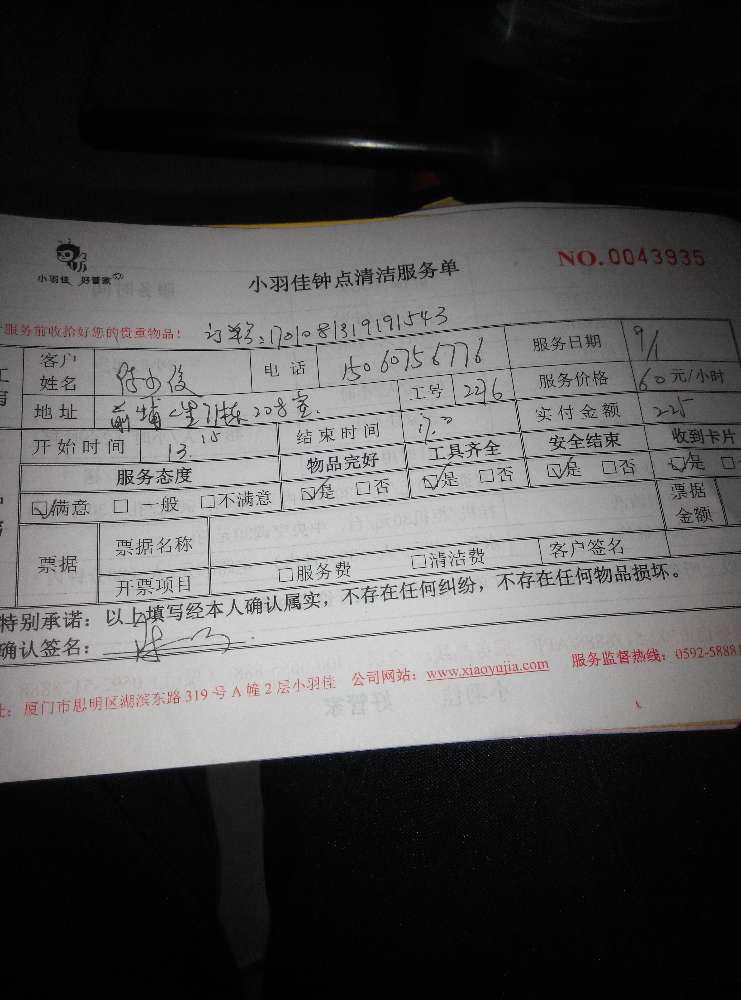 小羽佳 好管家
小羽佳钟点清洁服务单
NO.0043935
服务前收拾好您的贵重物品! 订单号:1701081319191543
客户姓名 电话 15060756776 服务日期 9/1
地址 前埔 208室 工号 2216 服务价格 60元/小时
开始时间 13 15 结束时间 17.0 实付金额 225
服务态度 物品完好 工具齐全 安全结束 收到卡片
☑满意 □一般 □不满意 ☑是 □否 ☑是 □否 ☑是 □否 ☑是 □
票据 票据名称 票据金额
开票项目 □服务费 □清洁费 客户签名
特别承诺:以上填写经本人确认属实,不存在任何纠纷,不存在任何物品损坏。
确认签名:
址:厦门市思明区湖滨东路319号A幢2层小羽佳 公司网站:www.xiaoyujia.com 服务监督热线:0592-58881